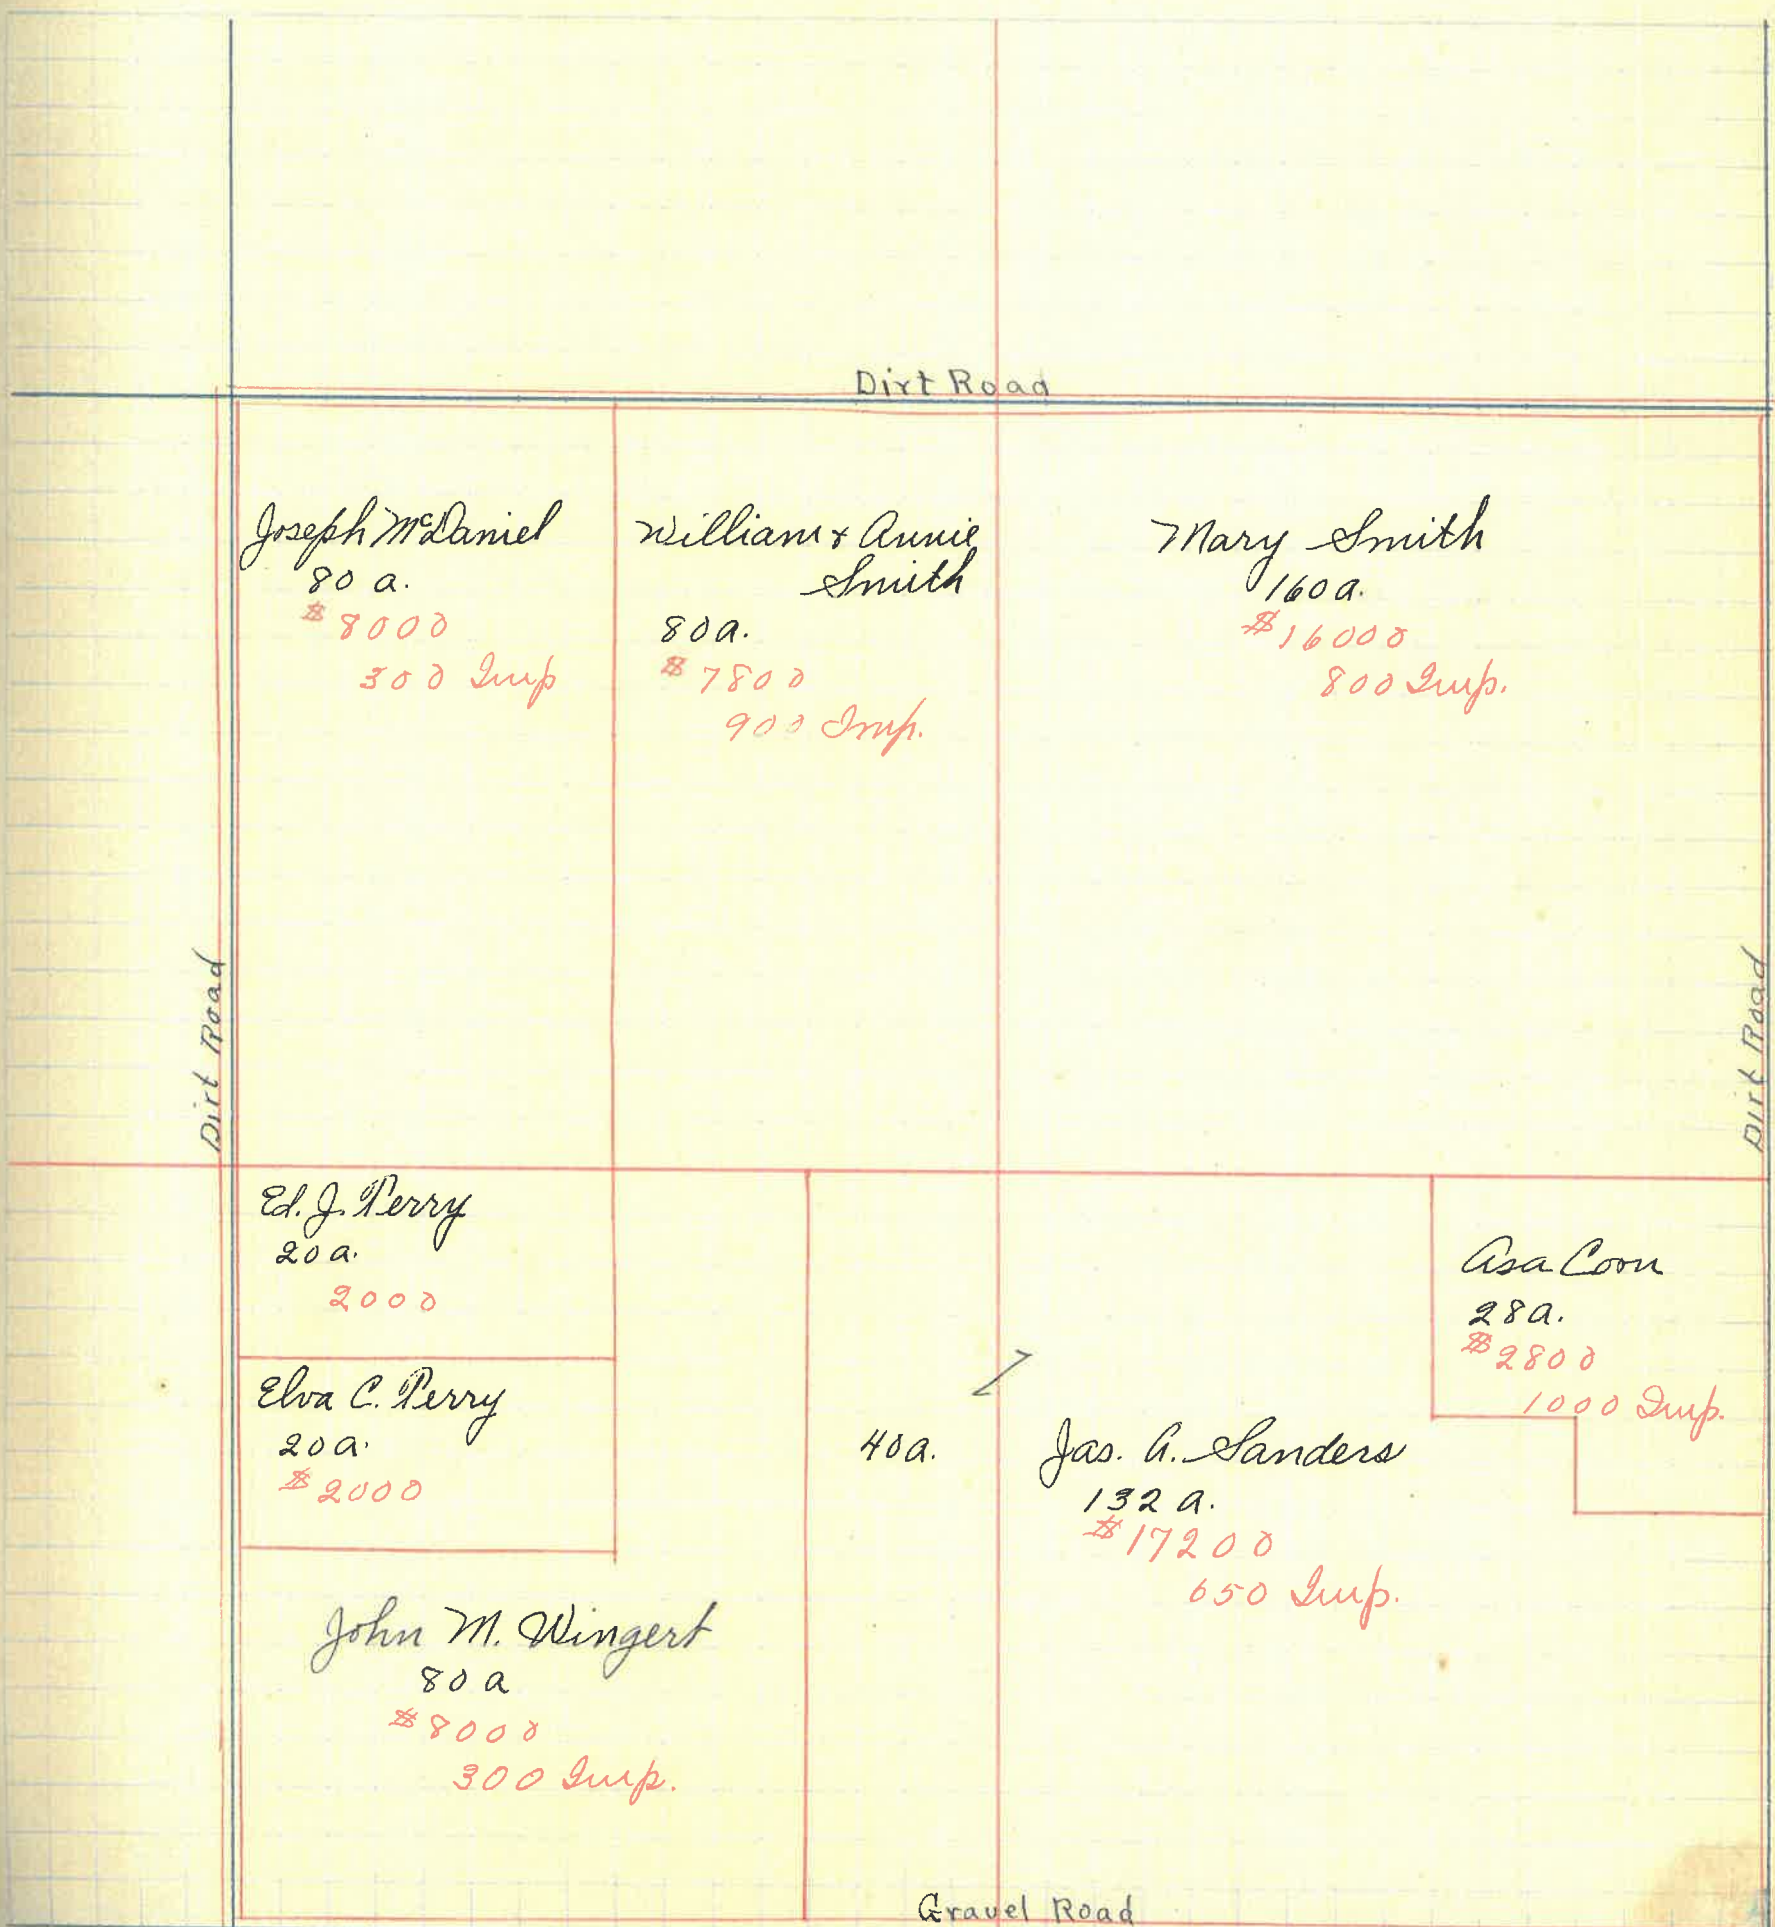 Dirt Road
Joseph McDaniel
80 a.
$8000
300 Imp
William & Annie
Smith
80a.
$7800
900 Imp.
Mary Smith
160a.
$16000
800 Imp.
Dirt Road
Dirt Road
Ed. J. Perry
20a.
2000
Elva C. Perry
20a.
$2000
John M. Wingert
80 a
$8000
300 Imp.
40a.
Jas. A. Sanders
132 a.
$17200
650 Imp.
Asa Coon
28a.
$2800
1000 Imp.
Gravel Road